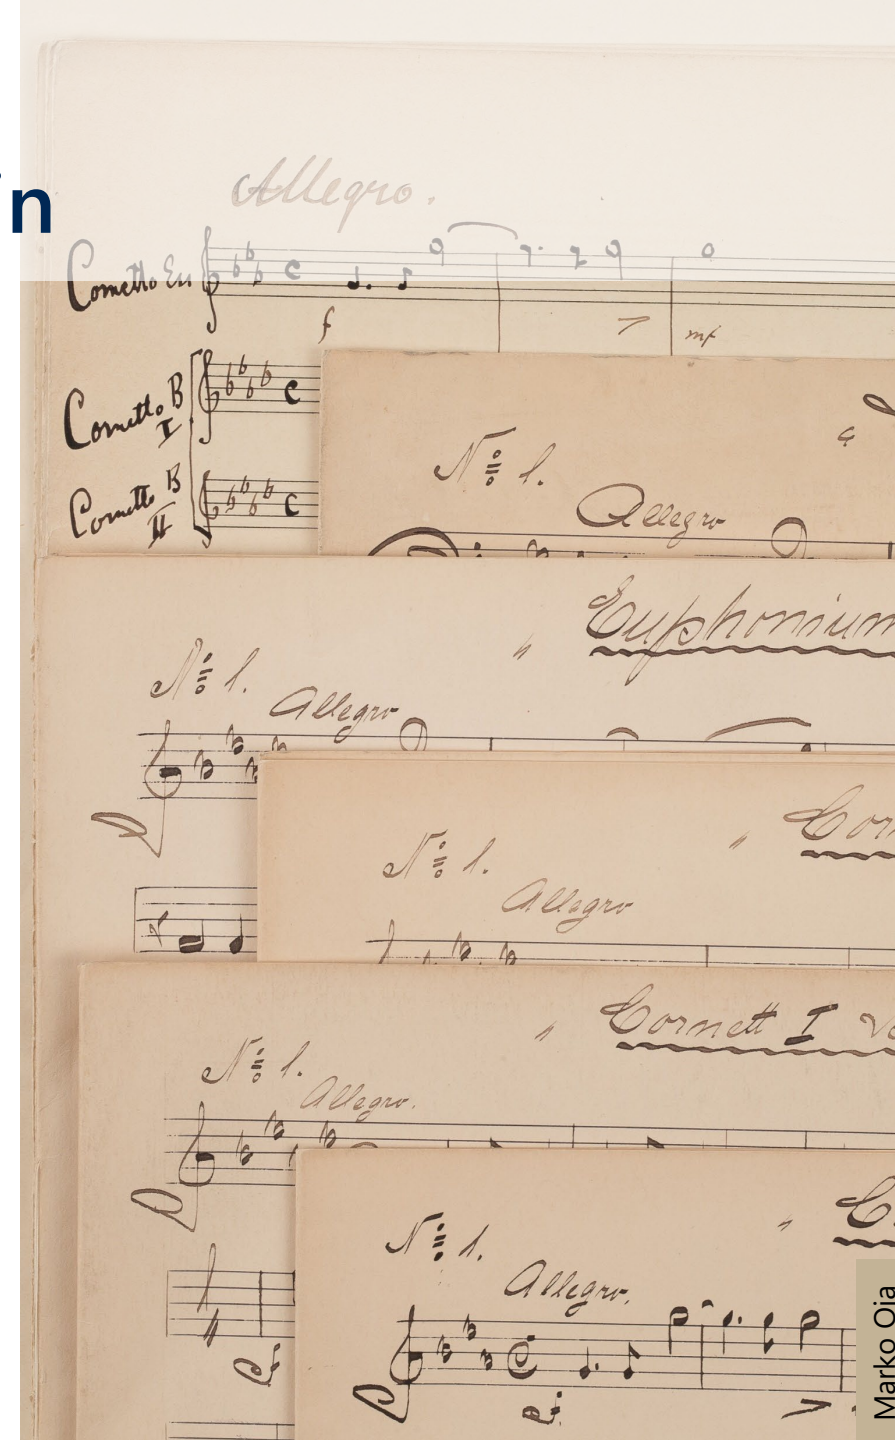 in
Allegro.
Cornetto Es
f
mf
Cornetto B
I
Cornetto B
II
No 1.
Allegro
Euphonium
No 1.
Allegro
No 1.
Allegro
Cornett I
No 1.
Allegro.
No 1.
Allegro.
Marko Oja